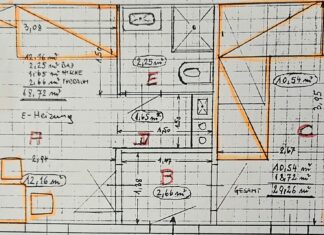 3,08
12,16 m²
2,25 m² BAD
1,65 m² NISCHE
2,66 m² VORRAUM
18,72 m²
1,50
2,25 m²
E
10,54 m²
3,95
E-Heizung
1,65 m²
A
D
1,50
C
2,94
2,67
12,16 m²
1,47
B
1,28
2,66 m²
GESAMT
10,54 m²
18,72 m²
29,26 m²